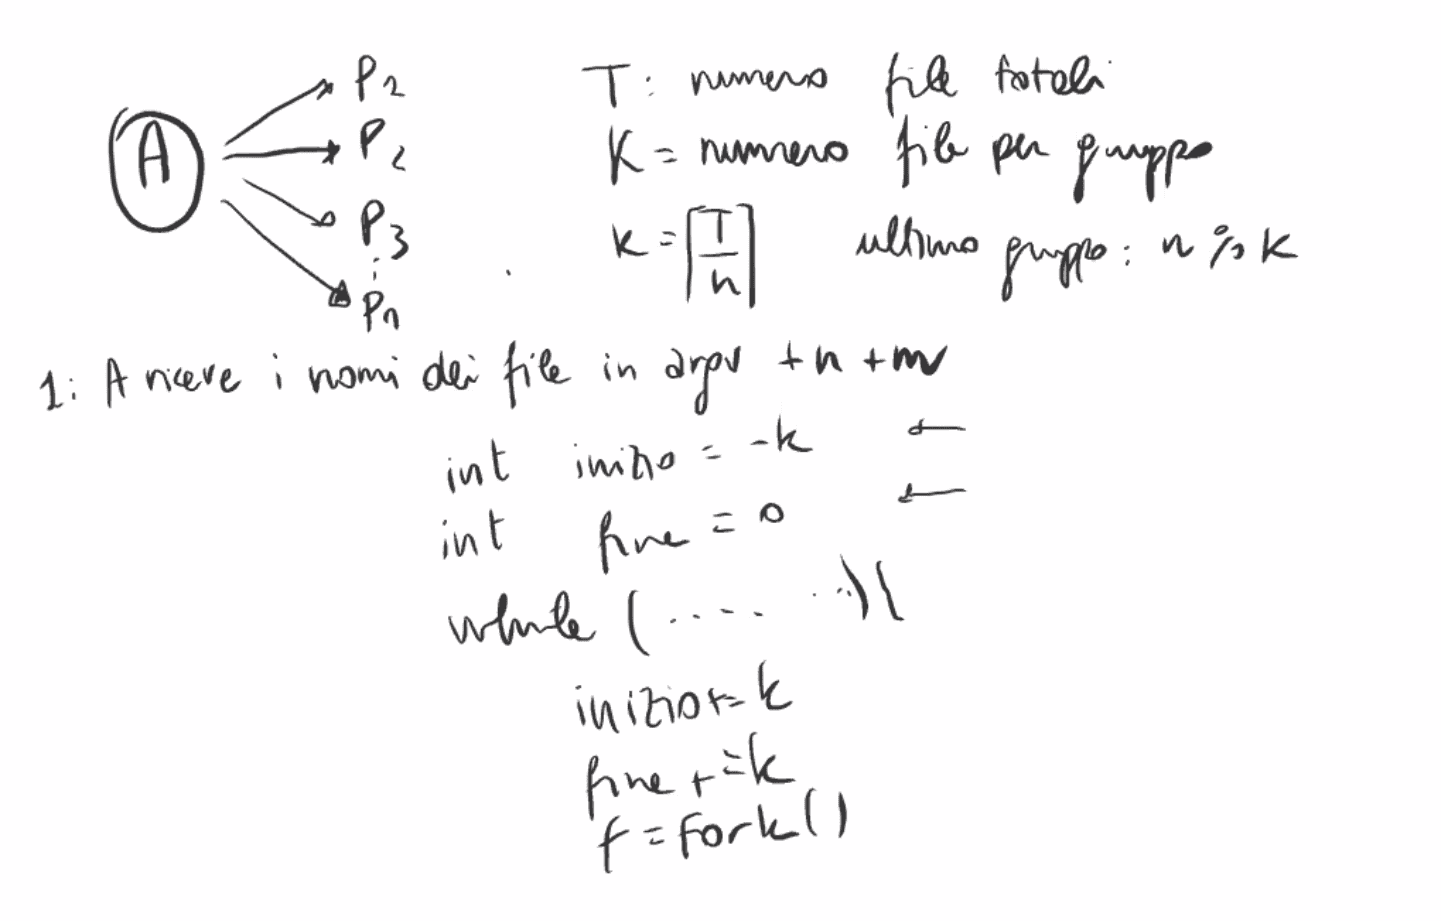 A
P2
P2
P3
⋮
Pn
T: numero file totali
K = numero file per gruppo
k = ⌈T/n⌉ ultimo gruppo: n % k
1: A riceve i nomi dei file in argv + n + m
int inizio = -k ←
int fine = 0 ←
while (.... ...){
inizio += k
fine += k
f = fork()